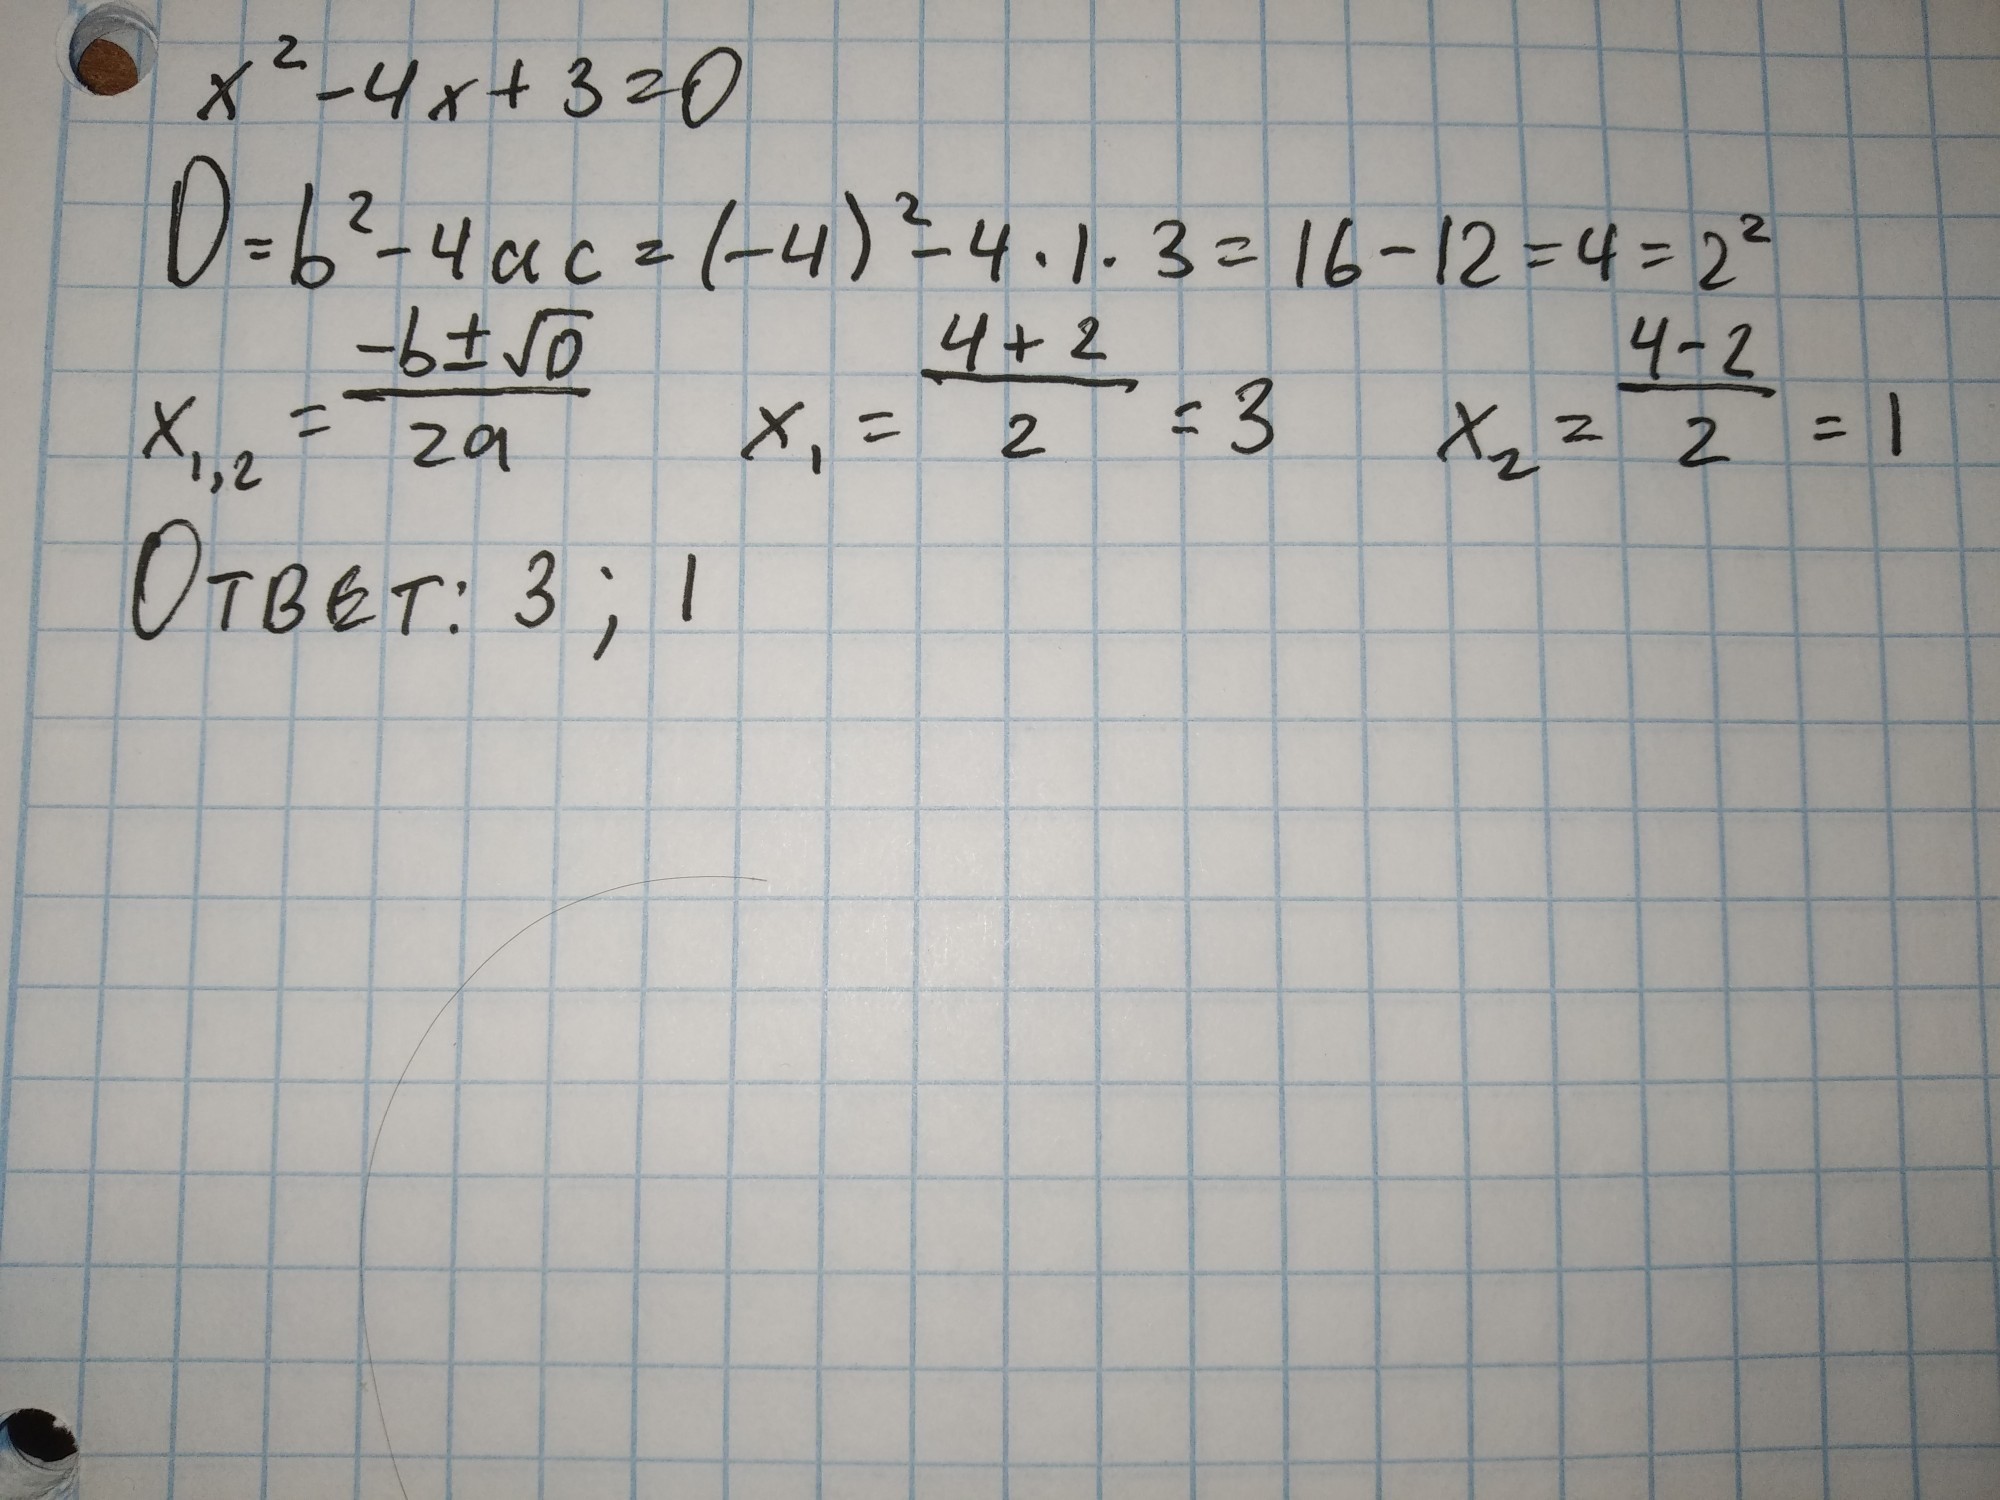 x² - 4x + 3 = 0
D = b² - 4ac = (-4)² - 4 · 1 · 3 = 16 - 12 = 4 = 2²
x₁,₂ = (-b ± √D) / 2a    x₁ = (4 + 2) / 2 = 3    x₂ = (4 - 2) / 2 = 1
Ответ: 3 ; 1